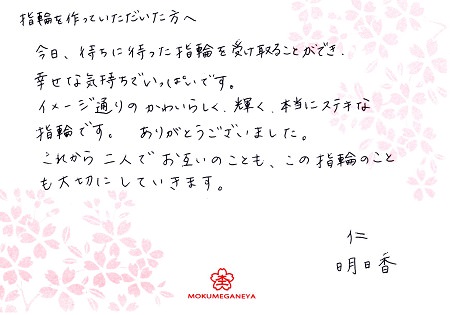 指輪を作っていただいた方へ
今日、待ちに待った指輪を受け取ることができ、
幸せな気持ちでいっぱいです。
イメージ通りの かわいらしく、輝く、本当にステキな
指輪です。 ありがとうございました。
これから 二人で お互いのことも、この 指輪のこと
も大切に していきます。
仁
明日香
MOKUMEGANEYA